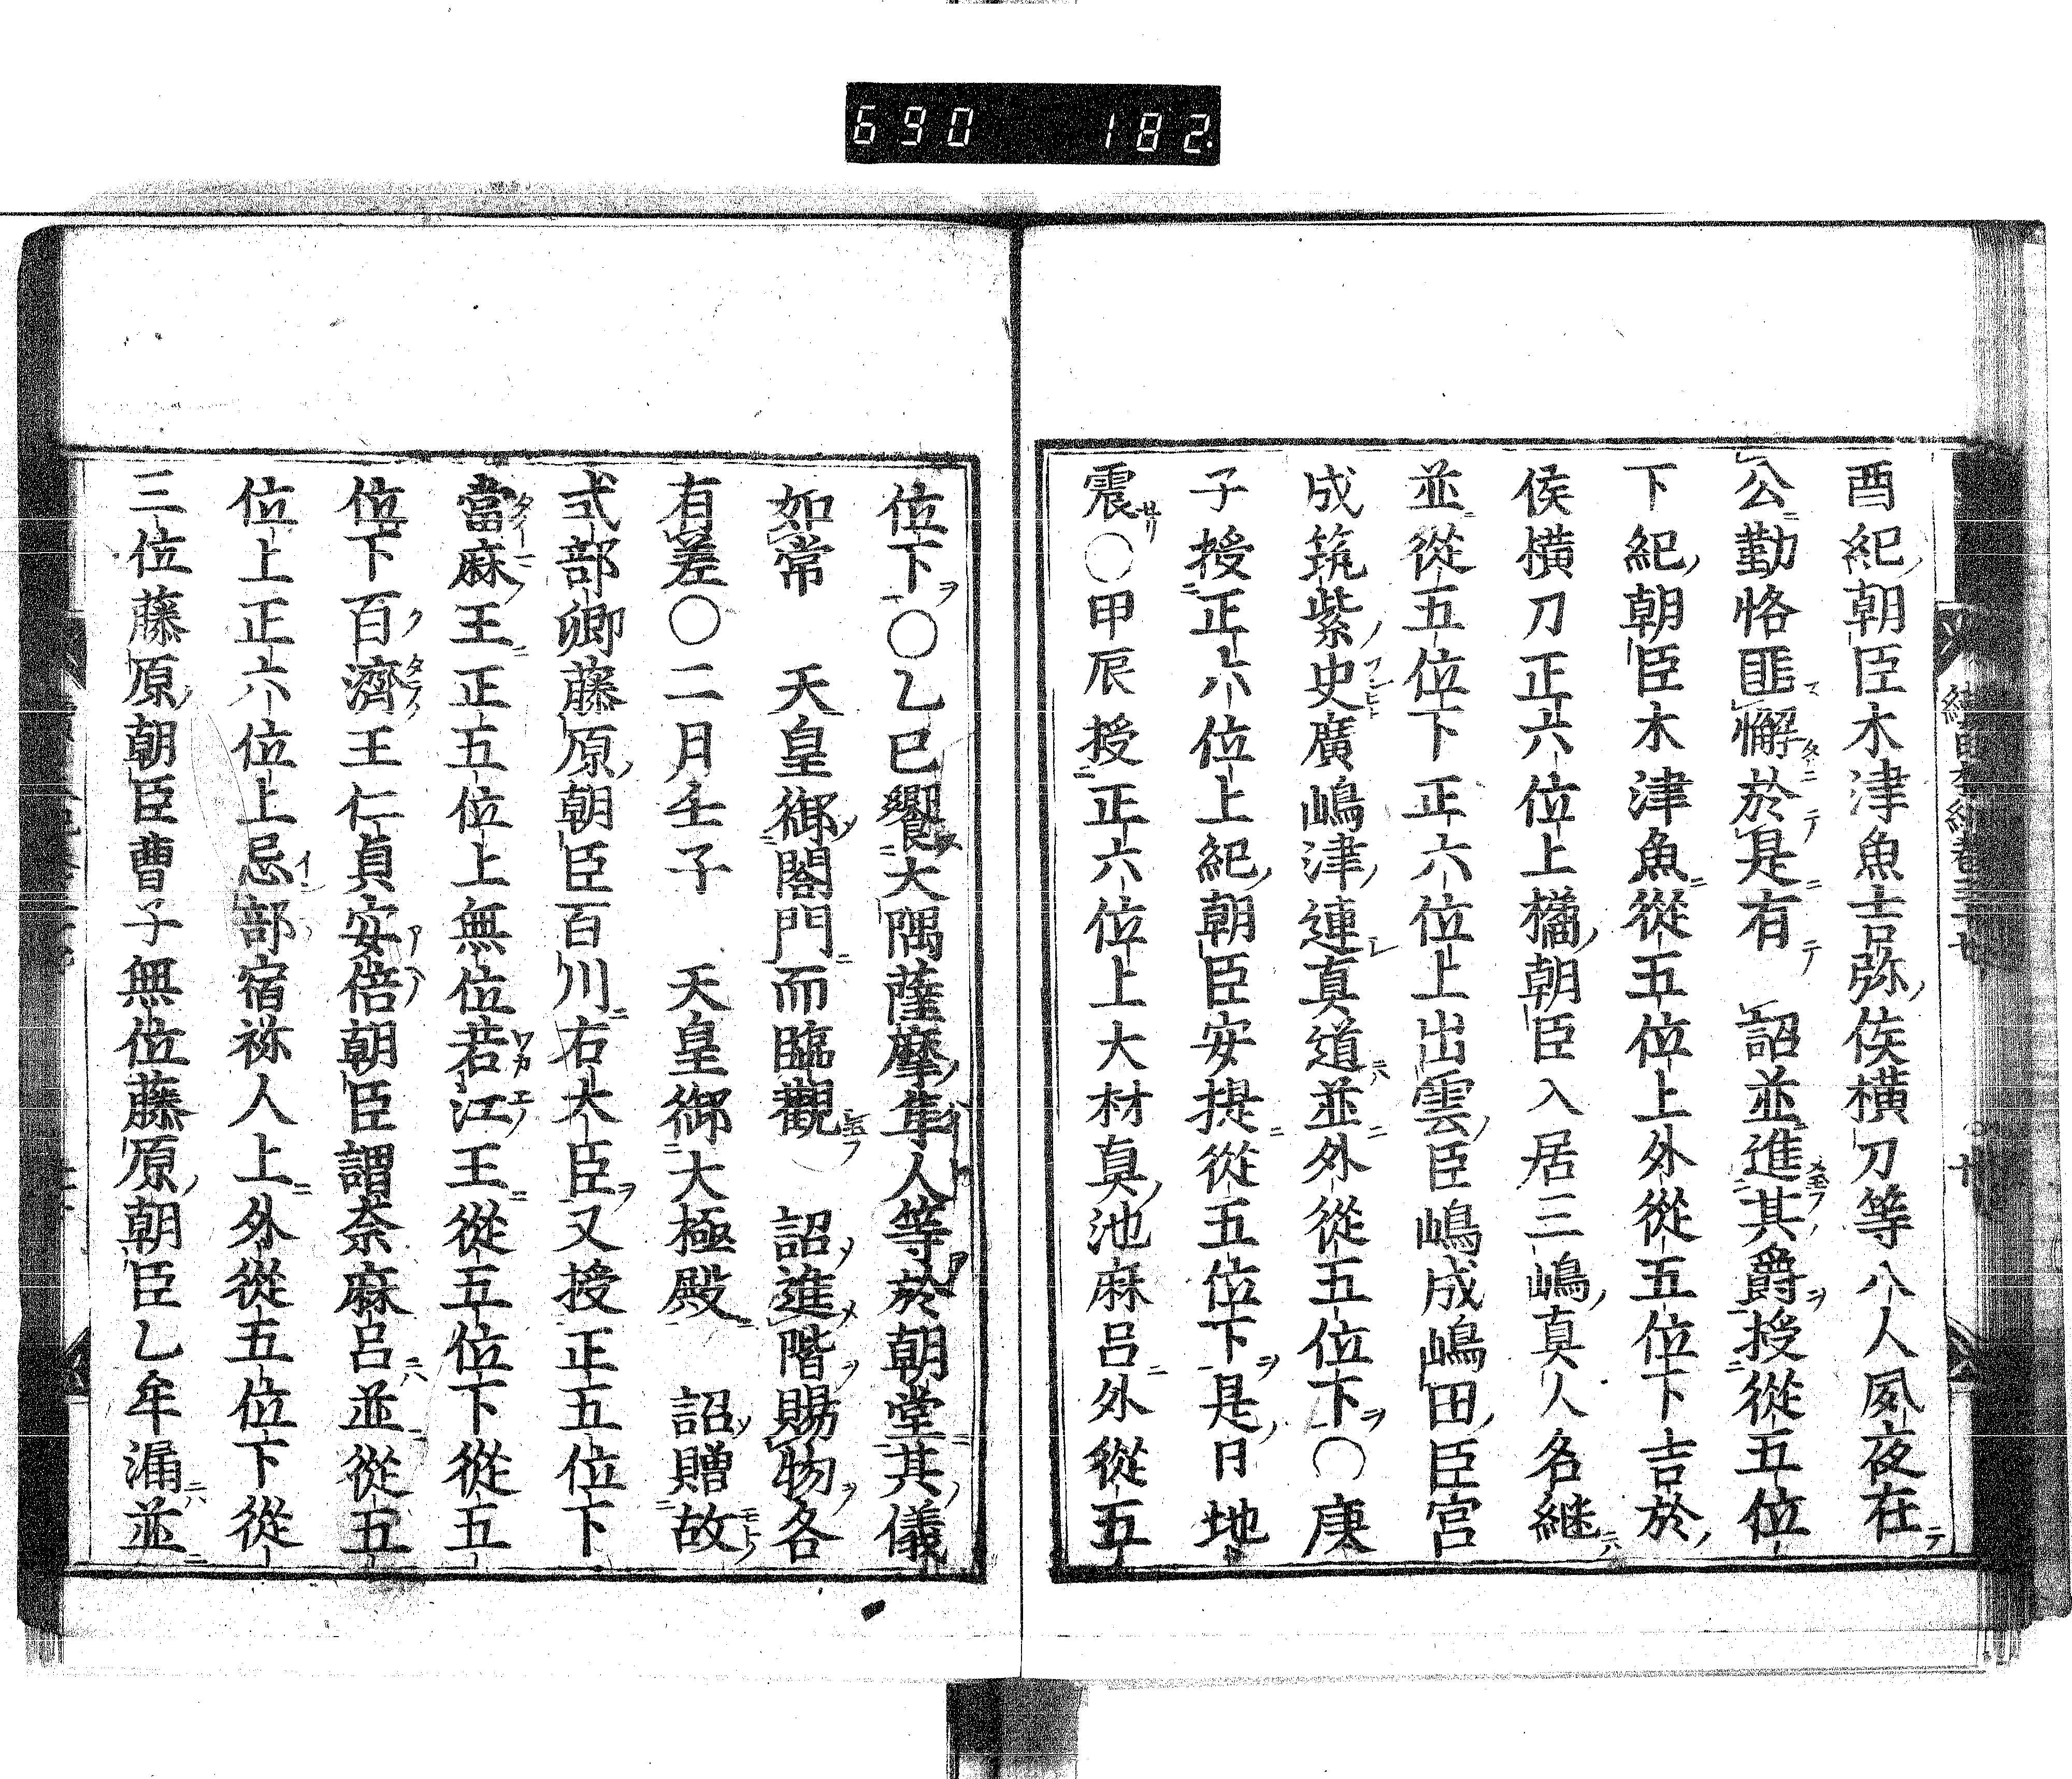 690 182
酉紀朝臣木津魚吉弥侯横刀等八人夙夜在
公勤恪匪懈於是有 詔並進其爵授從五位
下紀朝臣木津魚從五位上外從五位下吉於
侯横刀正六位上橘朝臣入居三嶋真人名継
並從五位下正六位上出雲臣嶋成嶋田臣宮
成筑紫史廣嶋津連真道並外從五位下〇庚
子授正六位上紀朝臣安提從五位下是日地
震〇甲辰授正六位上大材真池麻呂外從五
位下〇乙巳饗大隅薩摩隼人等於朝堂其儀
如常 天皇御閤門而臨觀 詔進階賜物各
有差〇二月壬子 天皇御大極殿 詔贈故
式部卿藤原朝臣百川右大臣又授正五位下
當麻王正五位上無位若江王從五位下從五
位下百濟王仁貞安倍朝臣謂奈麻呂並從五
位上正六位上忌部宿祢人上外從五位下從
三位藤原朝臣曹子無位藤原朝臣乙牟漏並